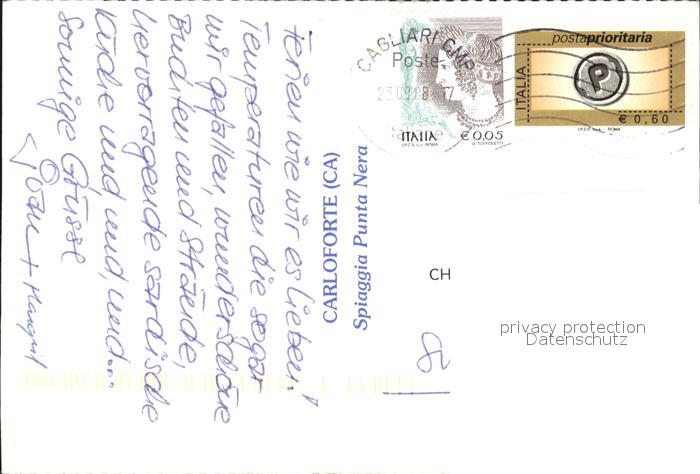 Ferien wie wir es lieben!
Temperaturen die sogar
mir gefallen, wunderschöne
Buchten und Strände,
hervorragende sardische
Küche und und, und...
Sonnige Grüsse
CARLOFORTE (CA)
Spiaggia Punta Nera
CAGLIARI CMP
Poste
ITALIA
€ 0,05
I.P.Z.S. S.p.A. - ROMA
postaprioritaria
ITALIA
P
€ 0,60
I.P.Z.S. S.p.A. - ROMA
CH
privacy protection
Datenschutz